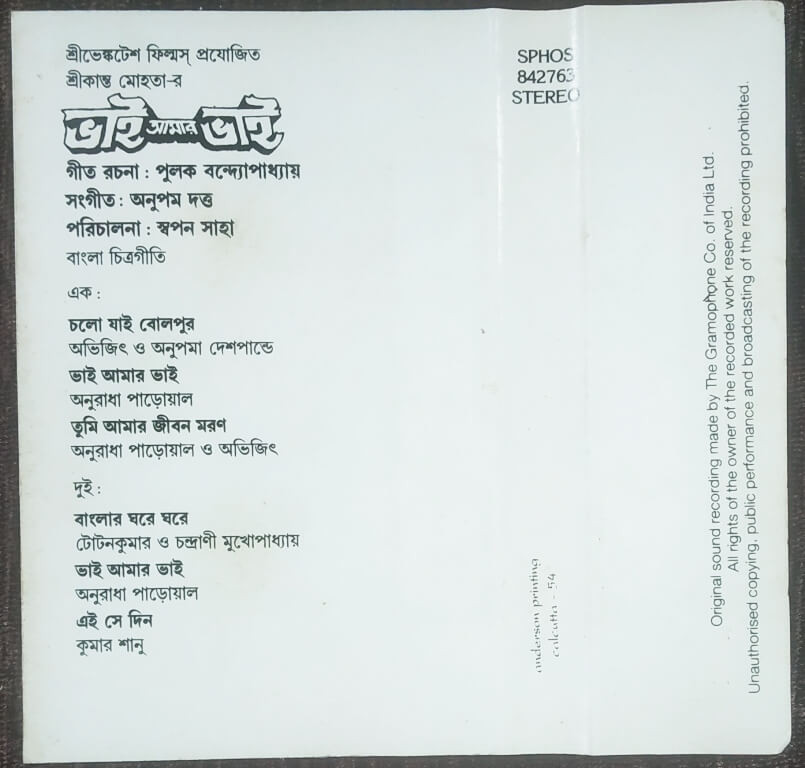 শ্রীভেঙ্কটেশ ফিল্মস্ প্রযোজিত
শ্রীকান্ত মোহতা-র
ভাই আমার ভাই
গীত রচনা : পুলক বন্দ্যোপাধ্যায়
সংগীত : অনুপম দত্ত
পরিচালনা : স্বপন সাহা
বাংলা চিত্রগীতি
এক :
চলো যাই বোলপুর
অভিজিৎ ও অনুপমা দেশপান্ডে
ভাই আমার ভাই
অনুরাধা পাড়োয়াল
তুমি আমার জীবন মরণ
অনুরাধা পাড়োয়াল ও অভিজিৎ
দুই :
বাংলার ঘরে ঘরে
টোটনকুমার ও চন্দ্রাণী মুখোপাধ্যায়
ভাই আমার ভাই
অনুরাধা পাড়োয়াল
এই সে দিন
কুমার শানু
SPHOS
842763
STEREO
anderson printing
calcutta - 54
Original sound recording made by The Gramophone Co. of India Ltd.
All rights of the owner of the recorded work reserved.
Unauthorised copying, public performance and broadcasting of the recording prohibited.